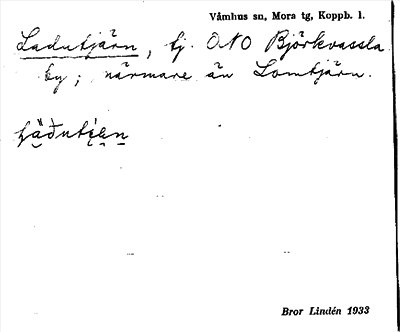 Våmhus sn, Mora tg, Koppb. l.
Ladutjärn, tj. ONO Björkvassla
by; närmare än Lomtjärn.
Bror Lindén 1933